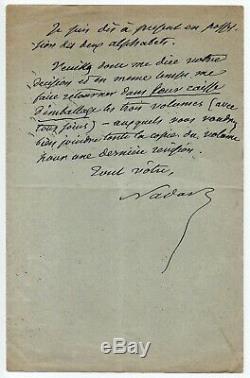 Je suis dès à présent en posses-
sion des deux alphabets.
Veuillez donc me dire votre
décision et en même temps me
faire retourner dans leur caisse
d'emballage les trois volumes (avec
tous soins) – auxquels vous voudrez
bien joindre toute la copie du volume
pour une dernière révision.
Tout vôtre,
Nadar